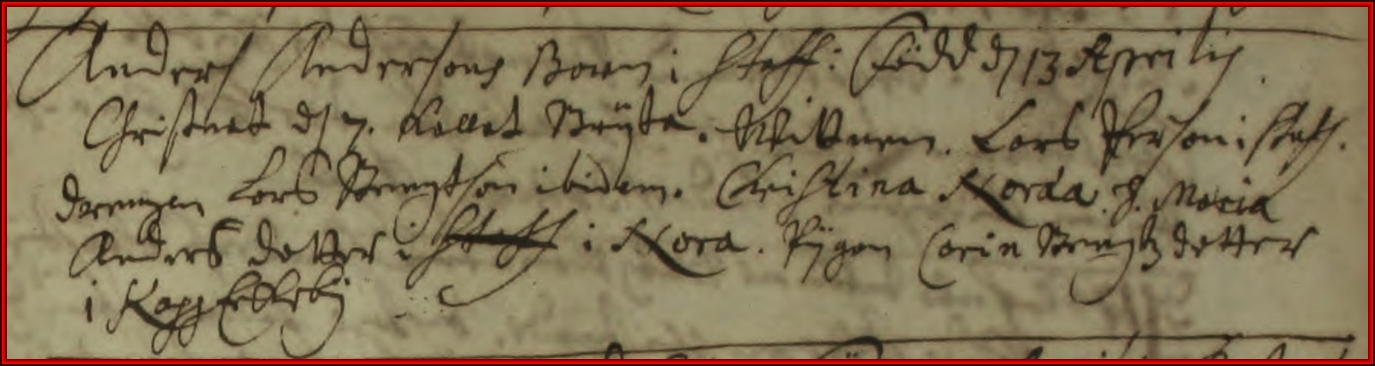 Anders Andersons Barn i Staff: Född d 13 Aprilis
Christnat d 7. kallat Brijta. Wittnen. Lars Person i Staf.
drengen Lars Bengtson ibidem. Christina Norda. h. Maria
Anders dotter i Staff i Nora. Pijgan Carin Bengtz dotter
i Kappelleby